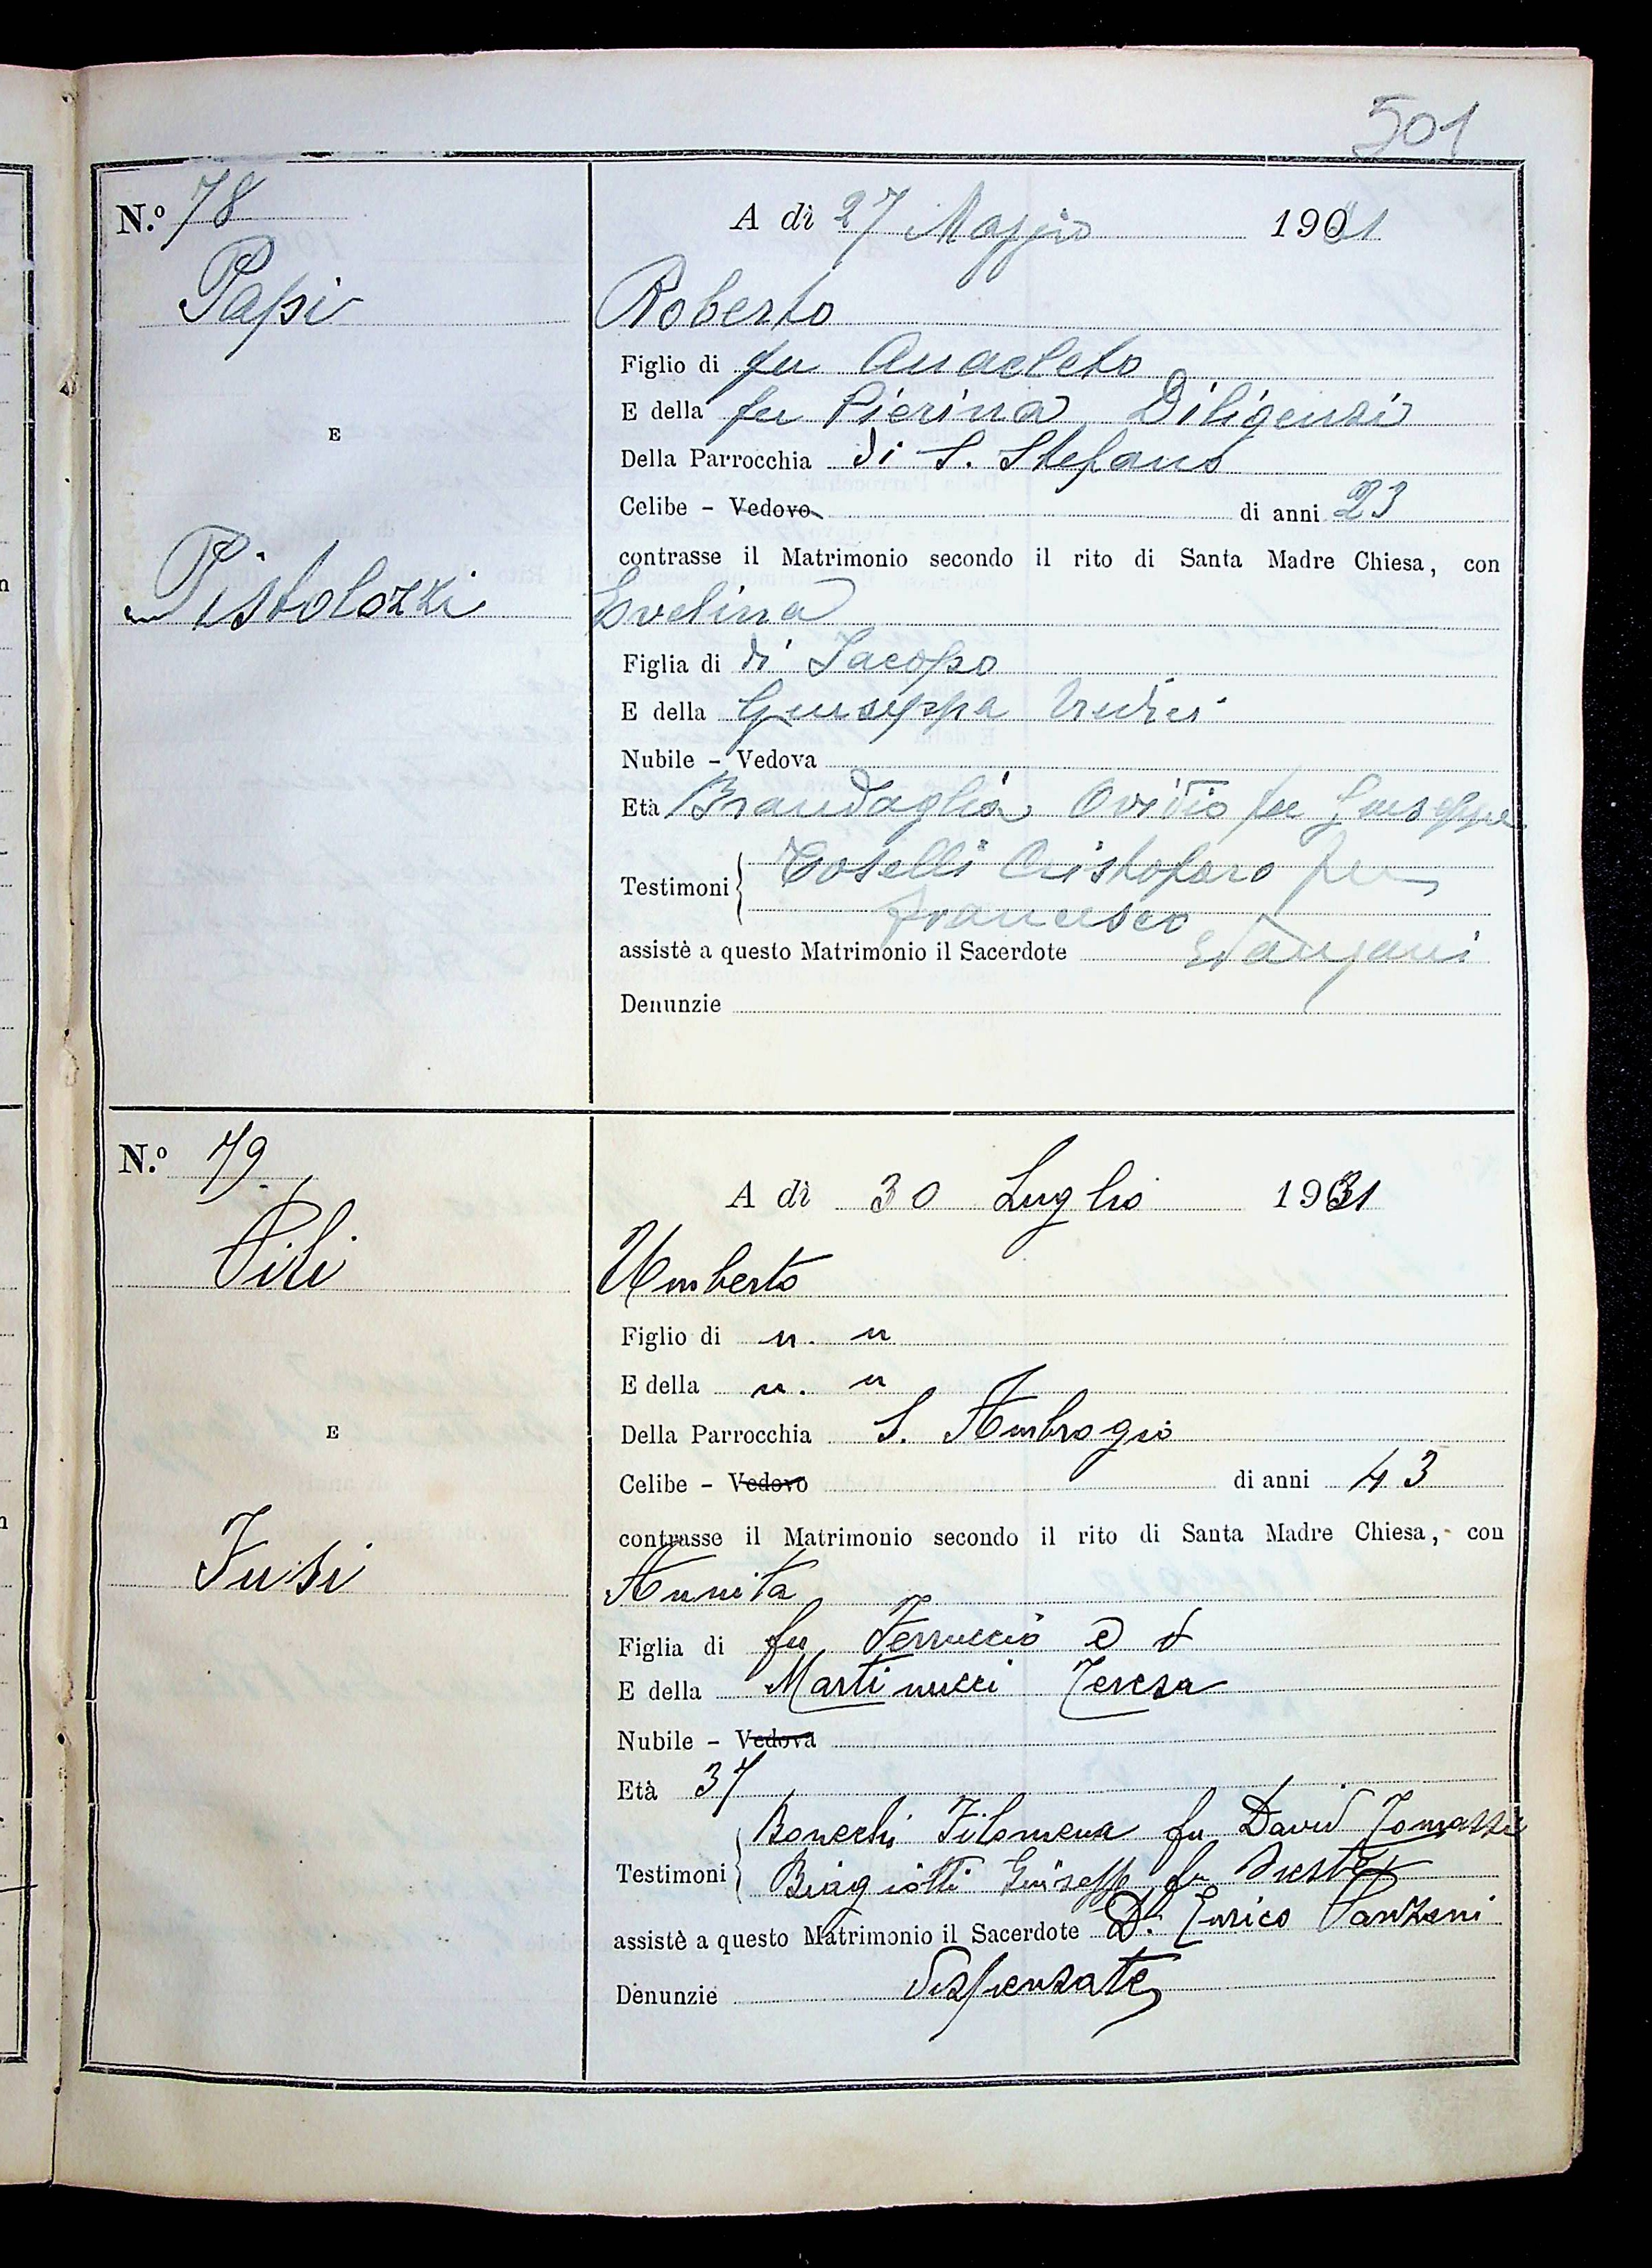 501
N.º 78
A dì 27 Maggio 1931
Papi
Roberto
Figlio di fu Anacleto
E della fu Pierina Diligenzi
E
Della Parrocchia di S. Stefano
Celibe - Vedovo di anni 23
contrasse il Matrimonio secondo il rito di Santa Madre Chiesa, con
Pistolozzi
Evelina
Figlia di di Jacopo
E della Giuseppa
Nubile - Vedova
Età Brandaglia Ovidio fu Giuseppe
Testimoni { Toselli Cristoforo fu
Francesco
assistè a questo Matrimonio il Sacerdote
Denunzie
N.º 79
A dì 30 Luglio 1931
Pili
Umberto
Figlio di n. n
E della n. n
E
Della Parrocchia S. Ambrogio
Celibe - Vedovo di anni 43
contrasse il Matrimonio secondo il rito di Santa Madre Chiesa, con
Fusi
Annita
Figlia di fu Ferruccio e d
E della Martinucci Teresa
Nubile - Vedova
Età 37
Bonechi Filomena fu David Tomassi
Testimoni { Biagiotti Giuseppe fu
assistè a questo Matrimonio il Sacerdote D. Enrico Panzani
Denunzie Dispensate